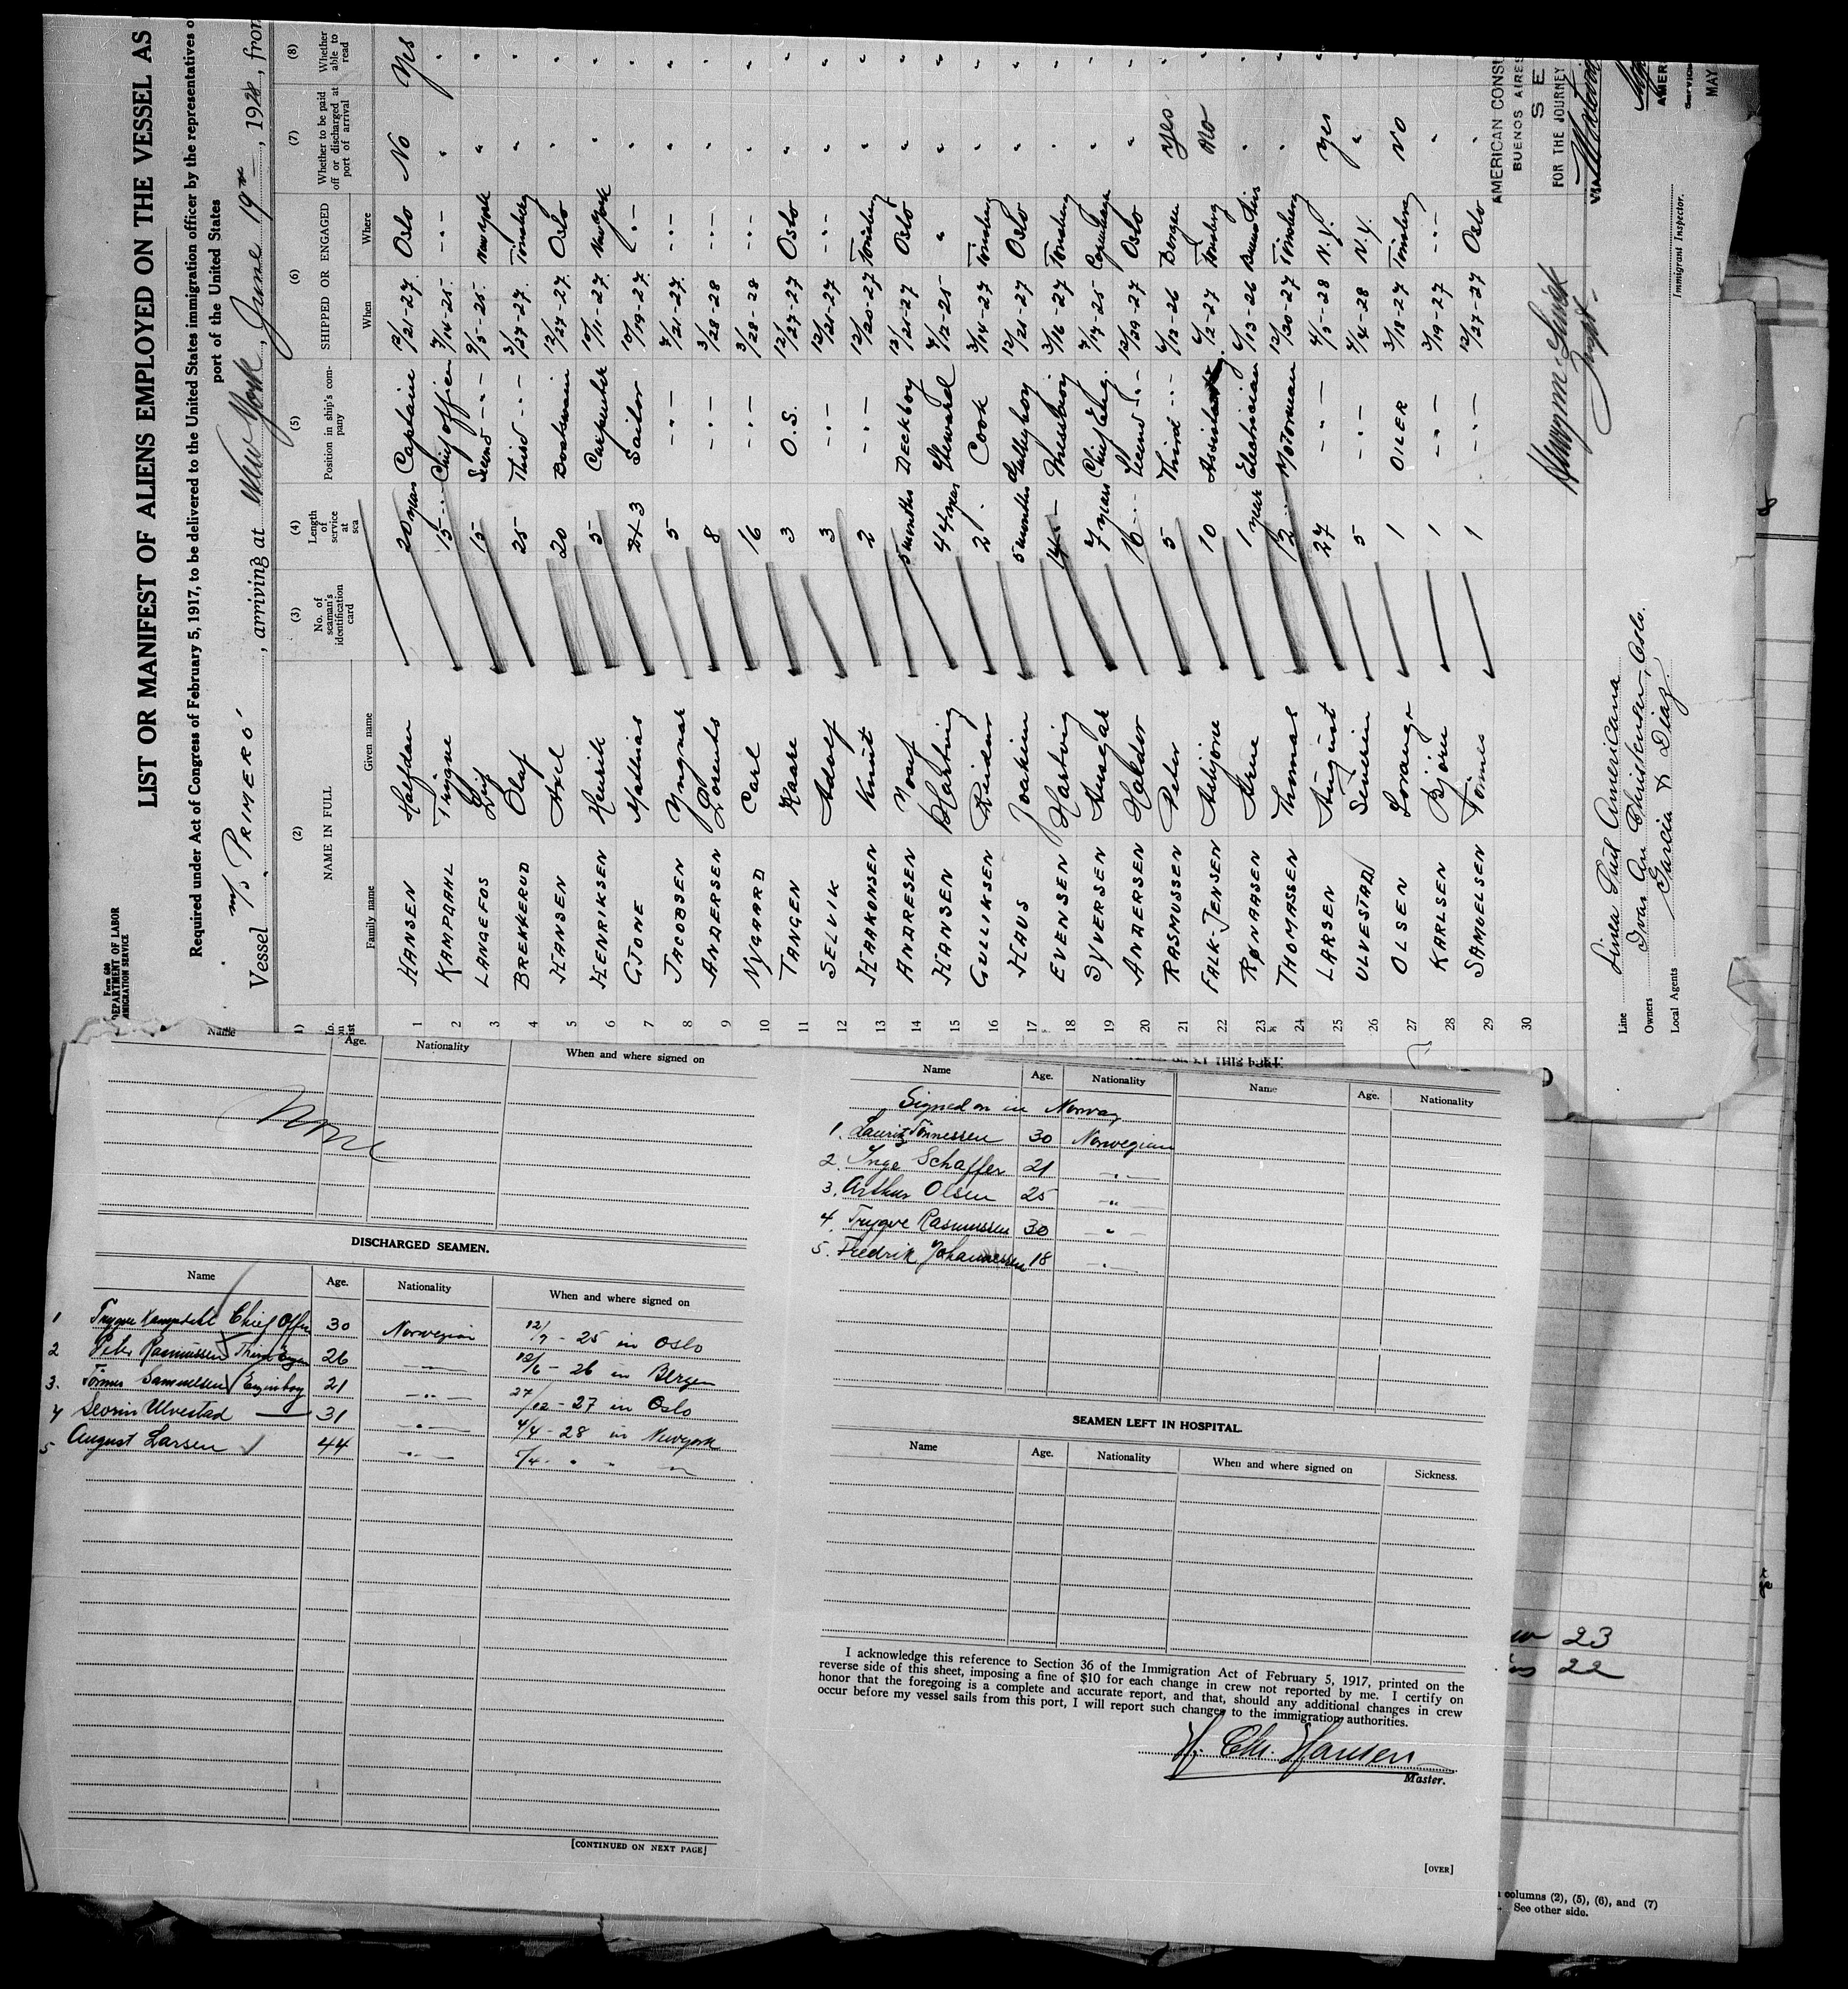 Form 680
DEPARTMENT OF LABOR
IMMIGRATION SERVICE
LIST OR MANIFEST OF ALIENS EMPLOYED ON THE VESSEL AS
Required under Act of Congress of February 5, 1917, to be delivered to the United States immigration officer by the representatives o
port of the United States
Vessel M/S PRIMERO, arriving at New York, June 19th, 1928, from
(2) (3) (4) (5) (6) (7) (8)
NAME IN FULL No. of seaman's identification card Length of service at sea Position in ship's company SHIPPED OR ENGAGED Whether to be paid off or discharged at port of arrival Whether able to read
Family name Given name When Where
1 HANSEN Halfdan 20 years Captain 12/21-27 Oslo No Yes
2 KAMPDAHL Trygve 15 -"- Chief officer 7/14-25 -"- " "
3 LANGEFOS Leif 15 Second -"- 9/5-25 New York " "
4 BREKKERUD Olaf 25 Third -"- 3/27-27 Tönsberg " "
5 HANSEN Axel 20 Boatswain 12/27-27 Oslo " "
6 HENRIKSEN Henrik 5 Carpenter 10/11-27 New York " "
7 GJONE Mathias 3 Sailor 10/19-27 -"- " "
8 JACOBSEN Yngvar 5 -"- 7/21-27 -"- " "
9 ANDERSEN Lorents 8 -"- 3/28-28 -"- " "
10 NYGAARD Carl 16 -"- 3/28-28 -"- " "
11 TANGEN Kaare 3 O.S. 12/27-27 Oslo " "
12 SELVIK Adolf 3 -"- 12/21-27 -"- " "
13 HAAKONSEN Knut 2 -"- 12/20-27 Tönsberg " "
14 ANDRESEN Josef 5 months DECKBOY 12/21-27 Oslo " "
15 HANSEN Harting 44 years Steward 7/12-25 " " "
16 GULLIKSEN Reidar 2 Cook 3/14-27 Tönsberg " "
17 HAUS Joakim 5 months Galleyboy 12/21-27 Oslo " "
18 EVENSEN Hartvig Messboy 3/16-27 Tönsberg " "
19 SYVERSEN Ansgar 7 years Chief Eng. 7/17-25 Copenhagen " "
20 ANDERSEN Halvdor 10 -"- Second -"- 12/29-27 Oslo " "
21 RASMUSSEN Peter 5 Third -"- 6/12-26 Bergen Yes "
22 FALK-JENSEN Asbjörn 10 Assistant 6/2-27 Tönsberg No "
23 RØNAASEN Arne 1 year Electrician 6/13-26 Buenos Aires " "
24 THOMASSEN Thomas 12 -"- MOTORMAN 12/20-27 Tönsberg " "
25 LARSEN August 27 -"- 4/5-28 N.Y. Yes "
26 ULVESTAD Severin 5 -"- 4/4-28 N.Y. " "
27 OLSEN 1 OILER 3/18-27 Tönsberg NO "
28 KARLSEN Björn 1 -"- 3/19-27 -"- " "
29 SAMUELSEN Tönnes 1 -"- 12/27-27 Oslo " "
30
AMERICAN CONSU
BUENOS AIRES
S E
FOR THE JOURNEY
AMER
SERVICE
MAY
Immigrant Inspector.
Line Linea Sud Americana
Owners Ivar An Christensen, Oslo.
Local Agents Garcia & Diaz.
Name Age. Nationality When and where signed on
None
DISCHARGED SEAMEN.
Name Age. Nationality When and where signed on
1 Trygve Kampdahl Chief Offr 30 Norwegian 12/7-25 in Oslo
2 Peter Rasmussen Third Engen 26 -"- 12/6-26 in Bergen
3. Tönnes Samuelsen Enginboy 21 -"- 27/12-27 in Oslo
4 Sevrin Ulvestad 31 -"- 4/4-28 in Newyork
5 August Larsen 44 -"- 5/4 " " "
[CONTINUED ON NEXT PAGE]
Name Age. Nationality Name Age. Nationality
Signed on in Norway
1. Lauritz Tönnessen 30 Norwegian
2. Inge Schaffer 21 -"-
3. Arthur Olsen 25 -"-
4. Trygve Rasmussen 30 -"-
5. Fredrik Johannessen 18 -"-
SEAMEN LEFT IN HOSPITAL.
Name Age. Nationality When and where signed on Sickness.
I acknowledge this reference to Section 36 of the Immigration Act of February 5, 1917, printed on the
reverse side of this sheet, imposing a fine of $10 for each change in crew not reported by me. I certify on
honor that the foregoing is a complete and accurate report, and that, should any additional changes in crew
occur before my vessel sails from this port, I will report such changes to the immigration authorities.
H. Chr. Hansen
Master.
[OVER]
23
22
columns (2), (5), (6), and (7)
See other side.